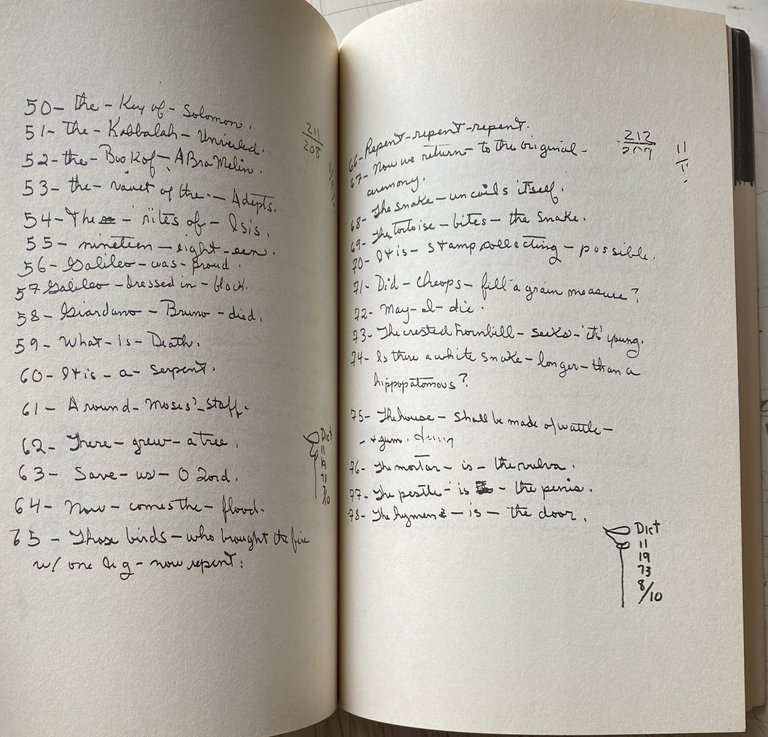 50- the - Key of - Solomon.
51- the - Kabbalah - Unveiled.
52- the - Book of, ABraMelin.
53- the - vault of the - Adepts.
54- The - rites of - Isis.
55- nineteen - eight - een.
56- Galileo - was - proud.
57 Galileo - dressed in - black.
58 - Giordano - Bruno - died.
59 - What - is - Death.
60 - It is - a - serpent.
61 - Around - Moses' - staff.
62 - There - grew - a tree.
63 - Save - us - O Lord.
64 - Now - comes the - flood.
65 - Those birds - who brought the fire
w/ one leg - now repent:
211
208
Dict
11
19
73
66 - Repent - repent - repent.
67 - Now we return - to the original -
ceremony.
68 - The snake - uncoils itself.
69 - The tortoise - bites - the snake.
70 - It is - stamp collecting - possible.
71 - Did - Cheops - fill a grain measure?
72 - May - I - die.
73 - The crested hornbill - seeks - its young.
74 - Is there a white snake - longer - than a
hippopatomous?
75 - The house - shall be made of wattle -
- + gum.
76 - The mortar - is - the vulva.
77 - The pestle - is - the penis.
78 - The hymen - is - the door.
212
11
Dict
11
19
73
8/10